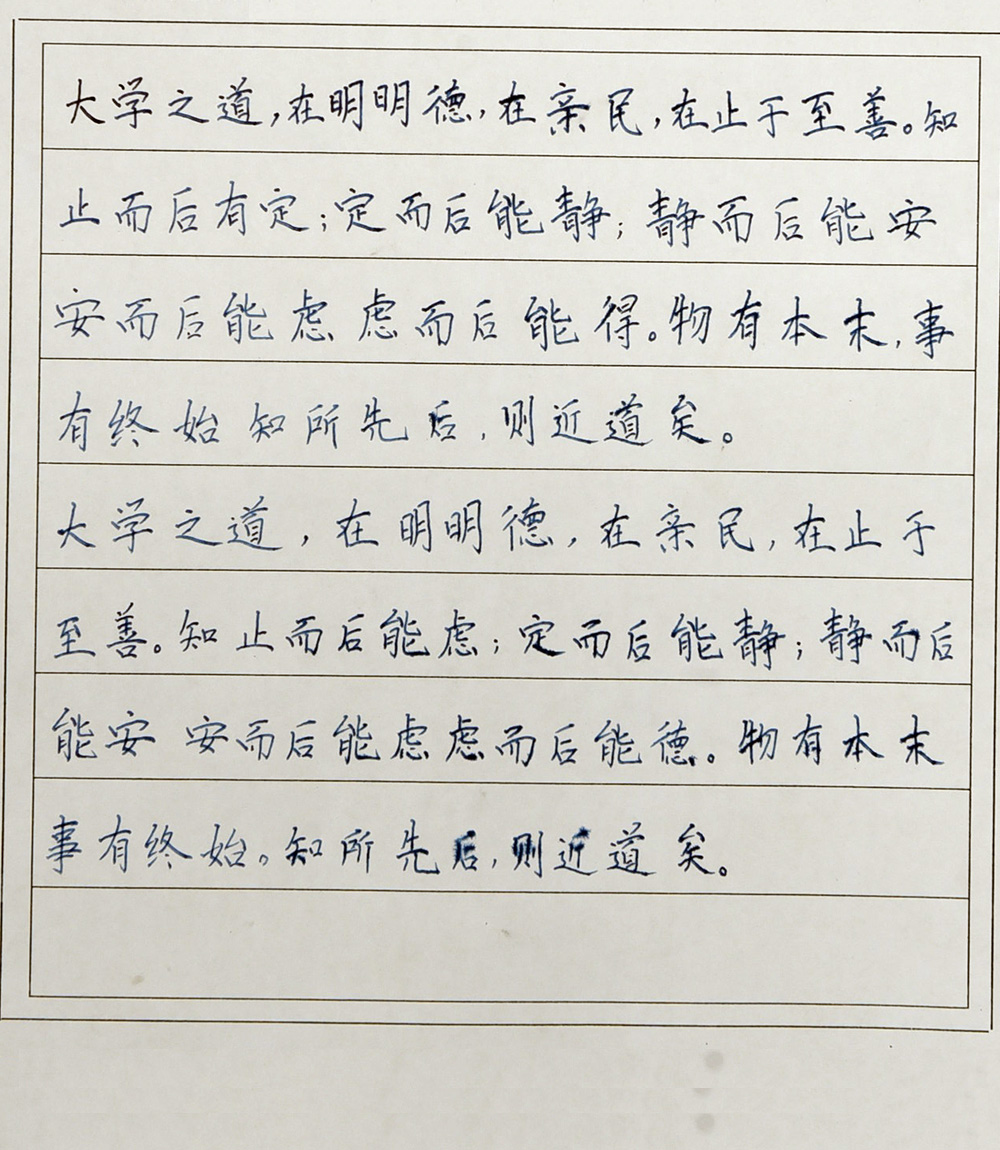 大学之道,在明明德,在亲民,在止于至善。知
止而后有定;定而后能静;静而后能安
安而后能虑虑而后能得。物有本末,事
有终始知所先后,则近道矣。
大学之道,在明明德,在亲民,在止于
至善。知止而后能虑;定而后能静;静而后
能安 安而后能虑虑而后能德。物有本末
事有终始。知所先后,则近道矣。